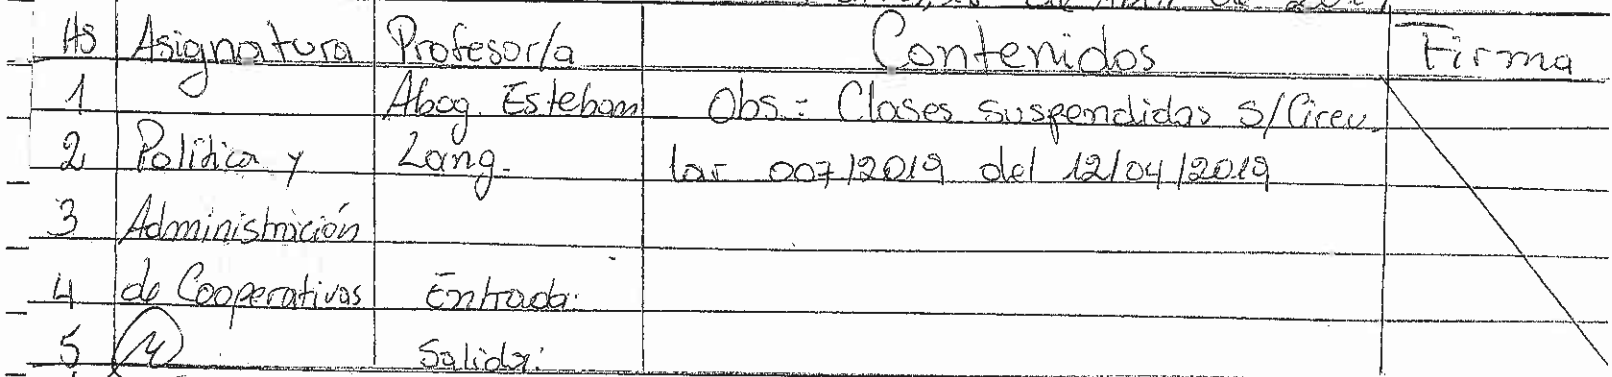 Hs Asignatura Profesor/a Contenidos Firma
1 Abog. Esteban Obs.: Clases suspendidas s/Circu.
2 Política y Lang. lar 007/2019 del 12/04/2019
3 Administración
4 de Cooperativas Entrada:
5 Salida: